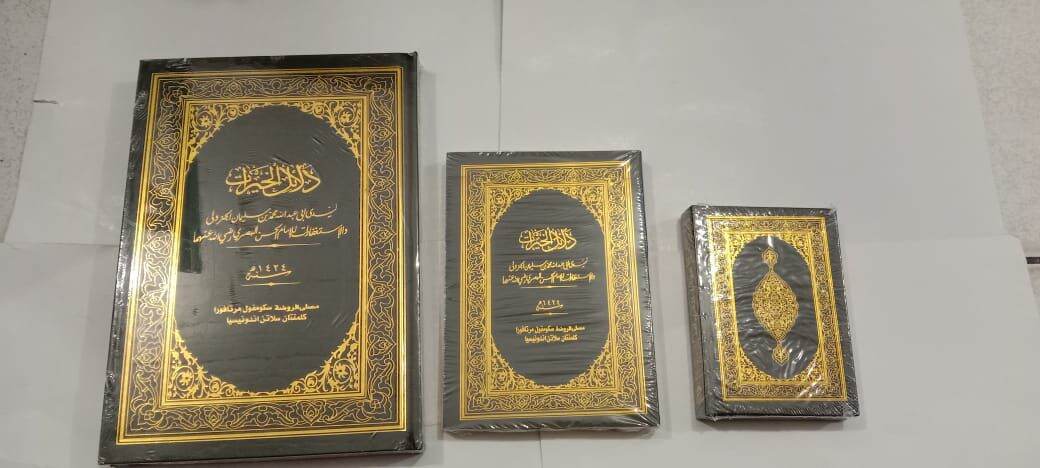 دلائل الخيرات
لسيدي أبي عبد الله محمد بن سليمان الجزولي
والاستغفارات للإمام الحسن البصري رضي الله عنهما
سنة ١٤٢٤ هـ
مصلى الروضة سكومفول مرتافورا
كلمنتان سلاتن اندونيسيا
دلائل الخيرات
لسيدي أبي عبد الله محمد بن سليمان الجزولي
والاستغفارات للإمام الحسن البصري رضي الله عنهما
سنة ١٤٢٤ هـ
مصلى الروضة سكومفول مرتافورا
كلمنتان سلاتن اندونيسيا